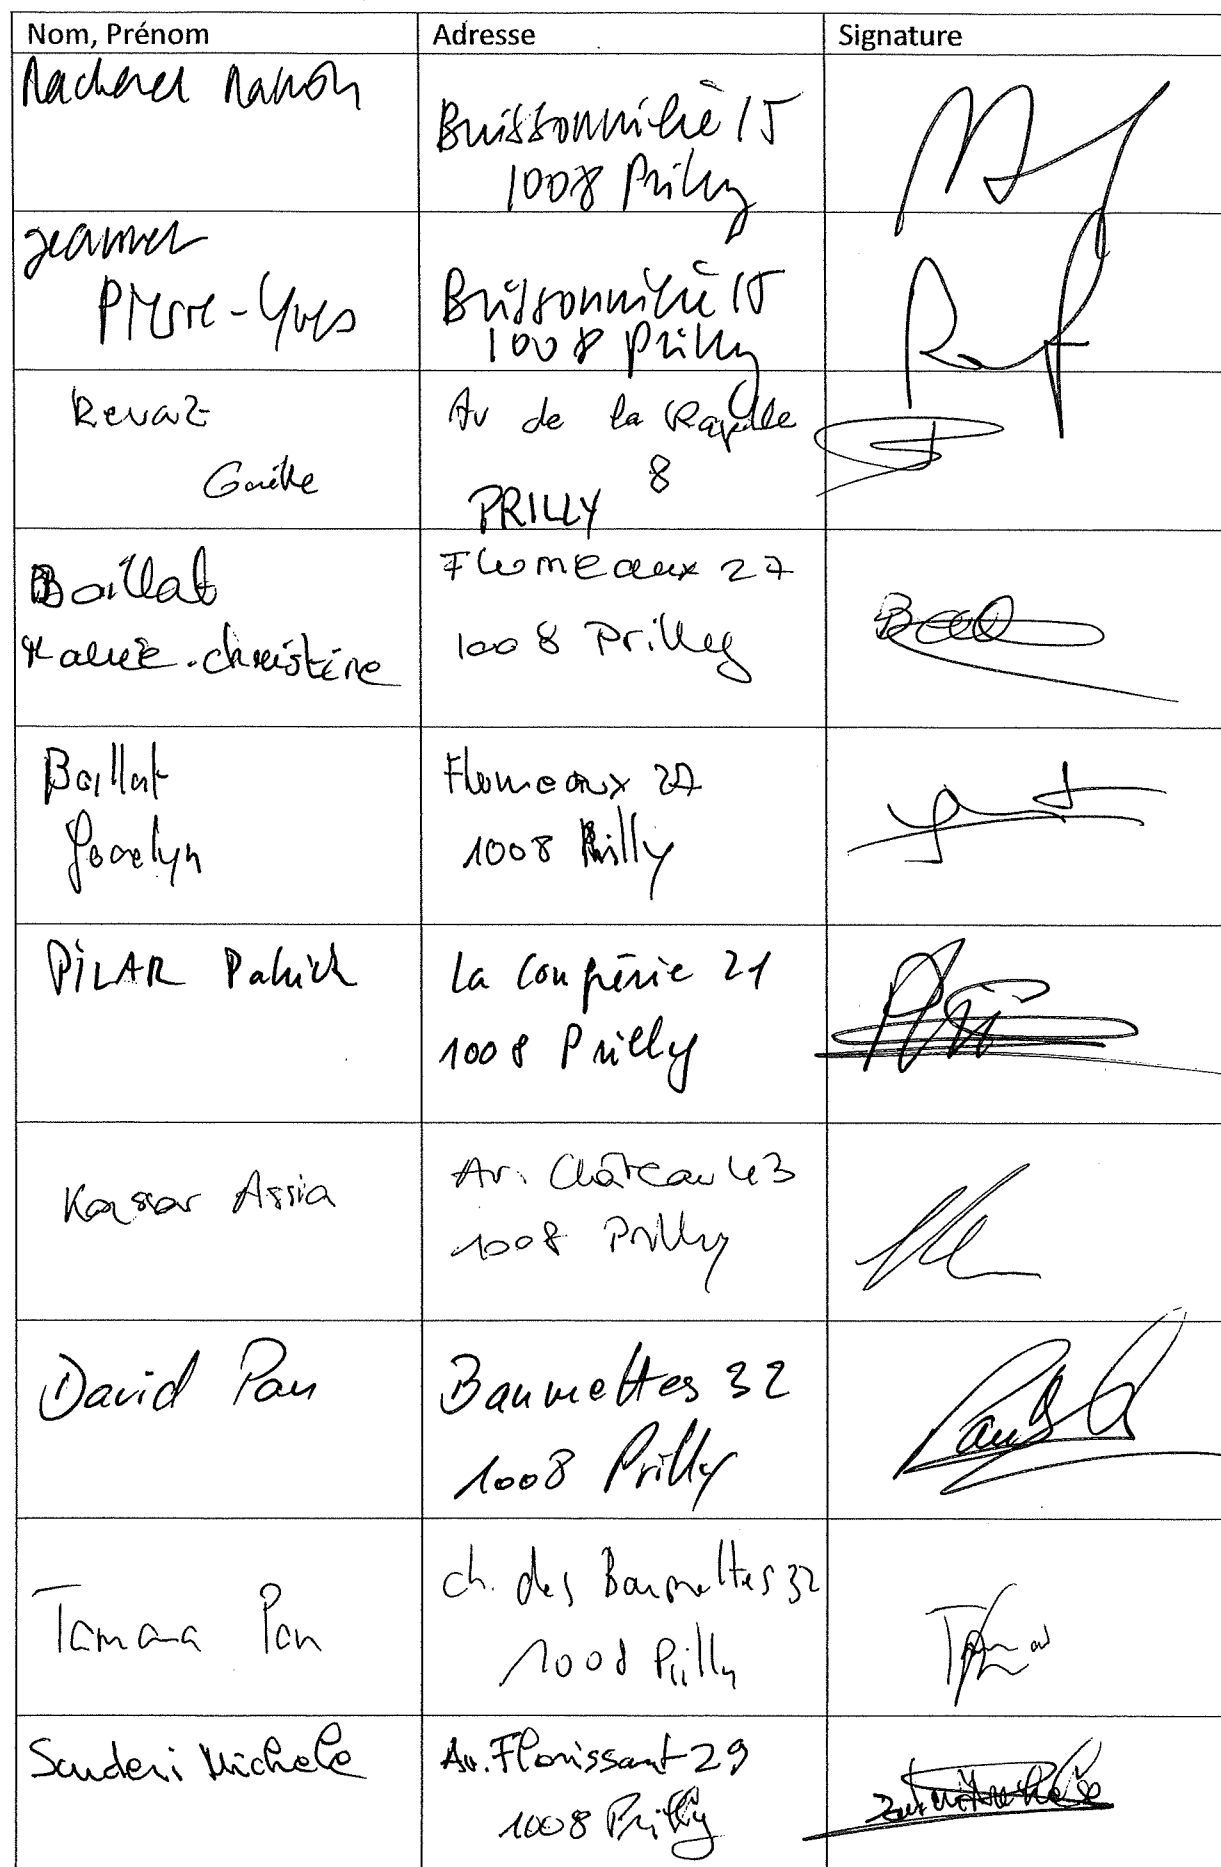 Nom, Prénom Adresse Signature
Racherel Manon
Buissonnière 15
1008 Prilly
Jeannet
Pierre-Yves
Buissonnière 15
1008 Prilly
Revaz
Gaëlle
Av de la Rapille
8
PRILLY
Baillat
Marie-christine
Flumeaux 27
1008 Prilly
Baillat
Jocelyn
Flumeaux 27
1008 Prilly
PILAR Patrick
La
21
1008 Prilly
Kassar Assia
Av. Château 43
1008 Prilly
David Pan
Baumettes 32
1008 Prilly
Tamara Pan
ch. des Baumettes 32
1008 Prilly
Scuderi Michele
Av. Florissant 29
1008 Prilly